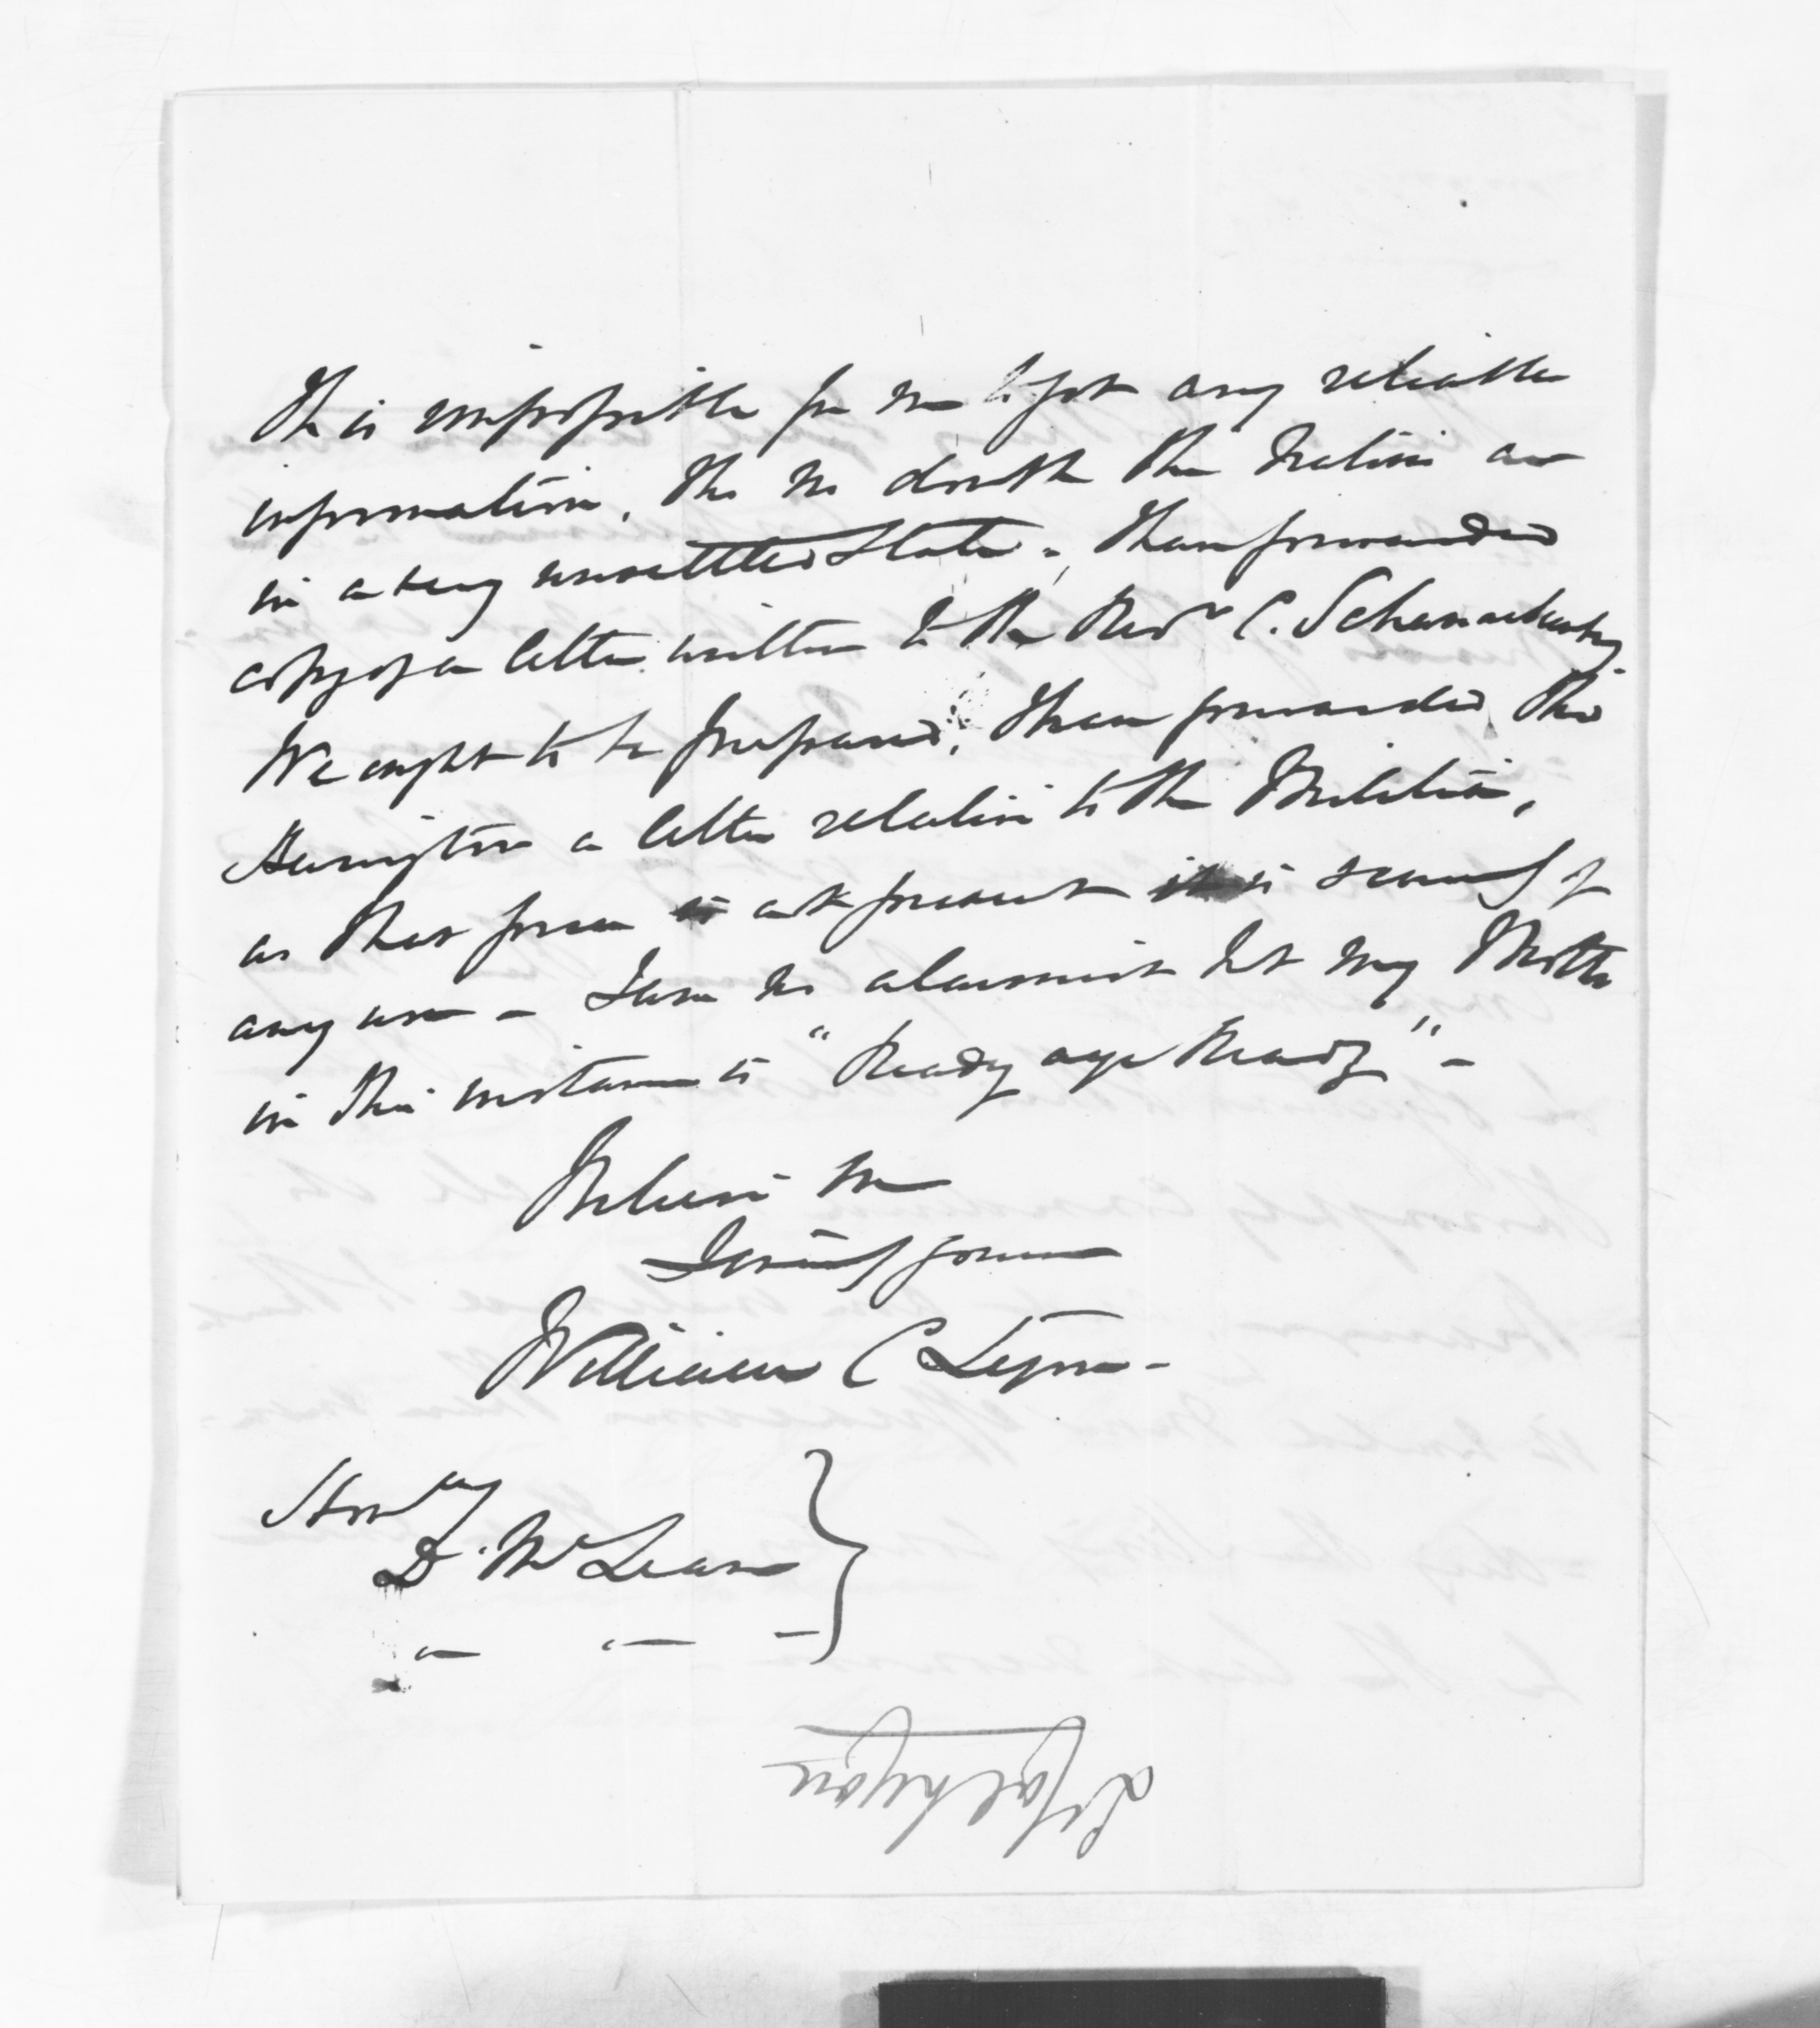 It is impossible for me to get any reliable
information, tho no doubt the Natives are
in a very unsettled state. I have forwarded
copy of a letter written to the Revd C. Schnackenberg
We ought to be prepared, I have forwarded Thro
Harington a letter relative to the Militia,
as that force is at present it is scarcely of
any use - I am no alarmist but my Motto
in this instance is "Ready aye Ready" -
Believe me
Faithfully yours
William C Lyon -
Honble
D. McLean
Halkyon